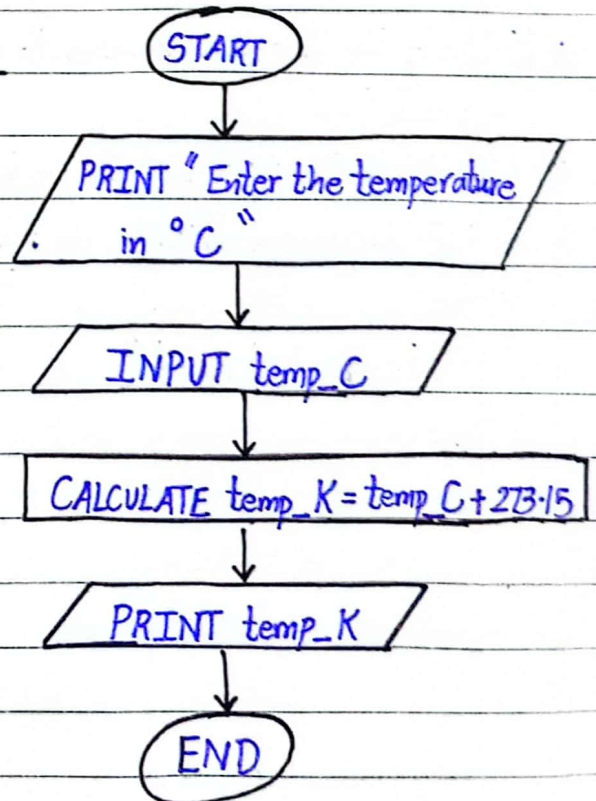 START
PRINT "Enter the temperature
in °C"
INPUT temp_C
CALCULATE temp_K = temp_C + 273.15
PRINT temp_K
END